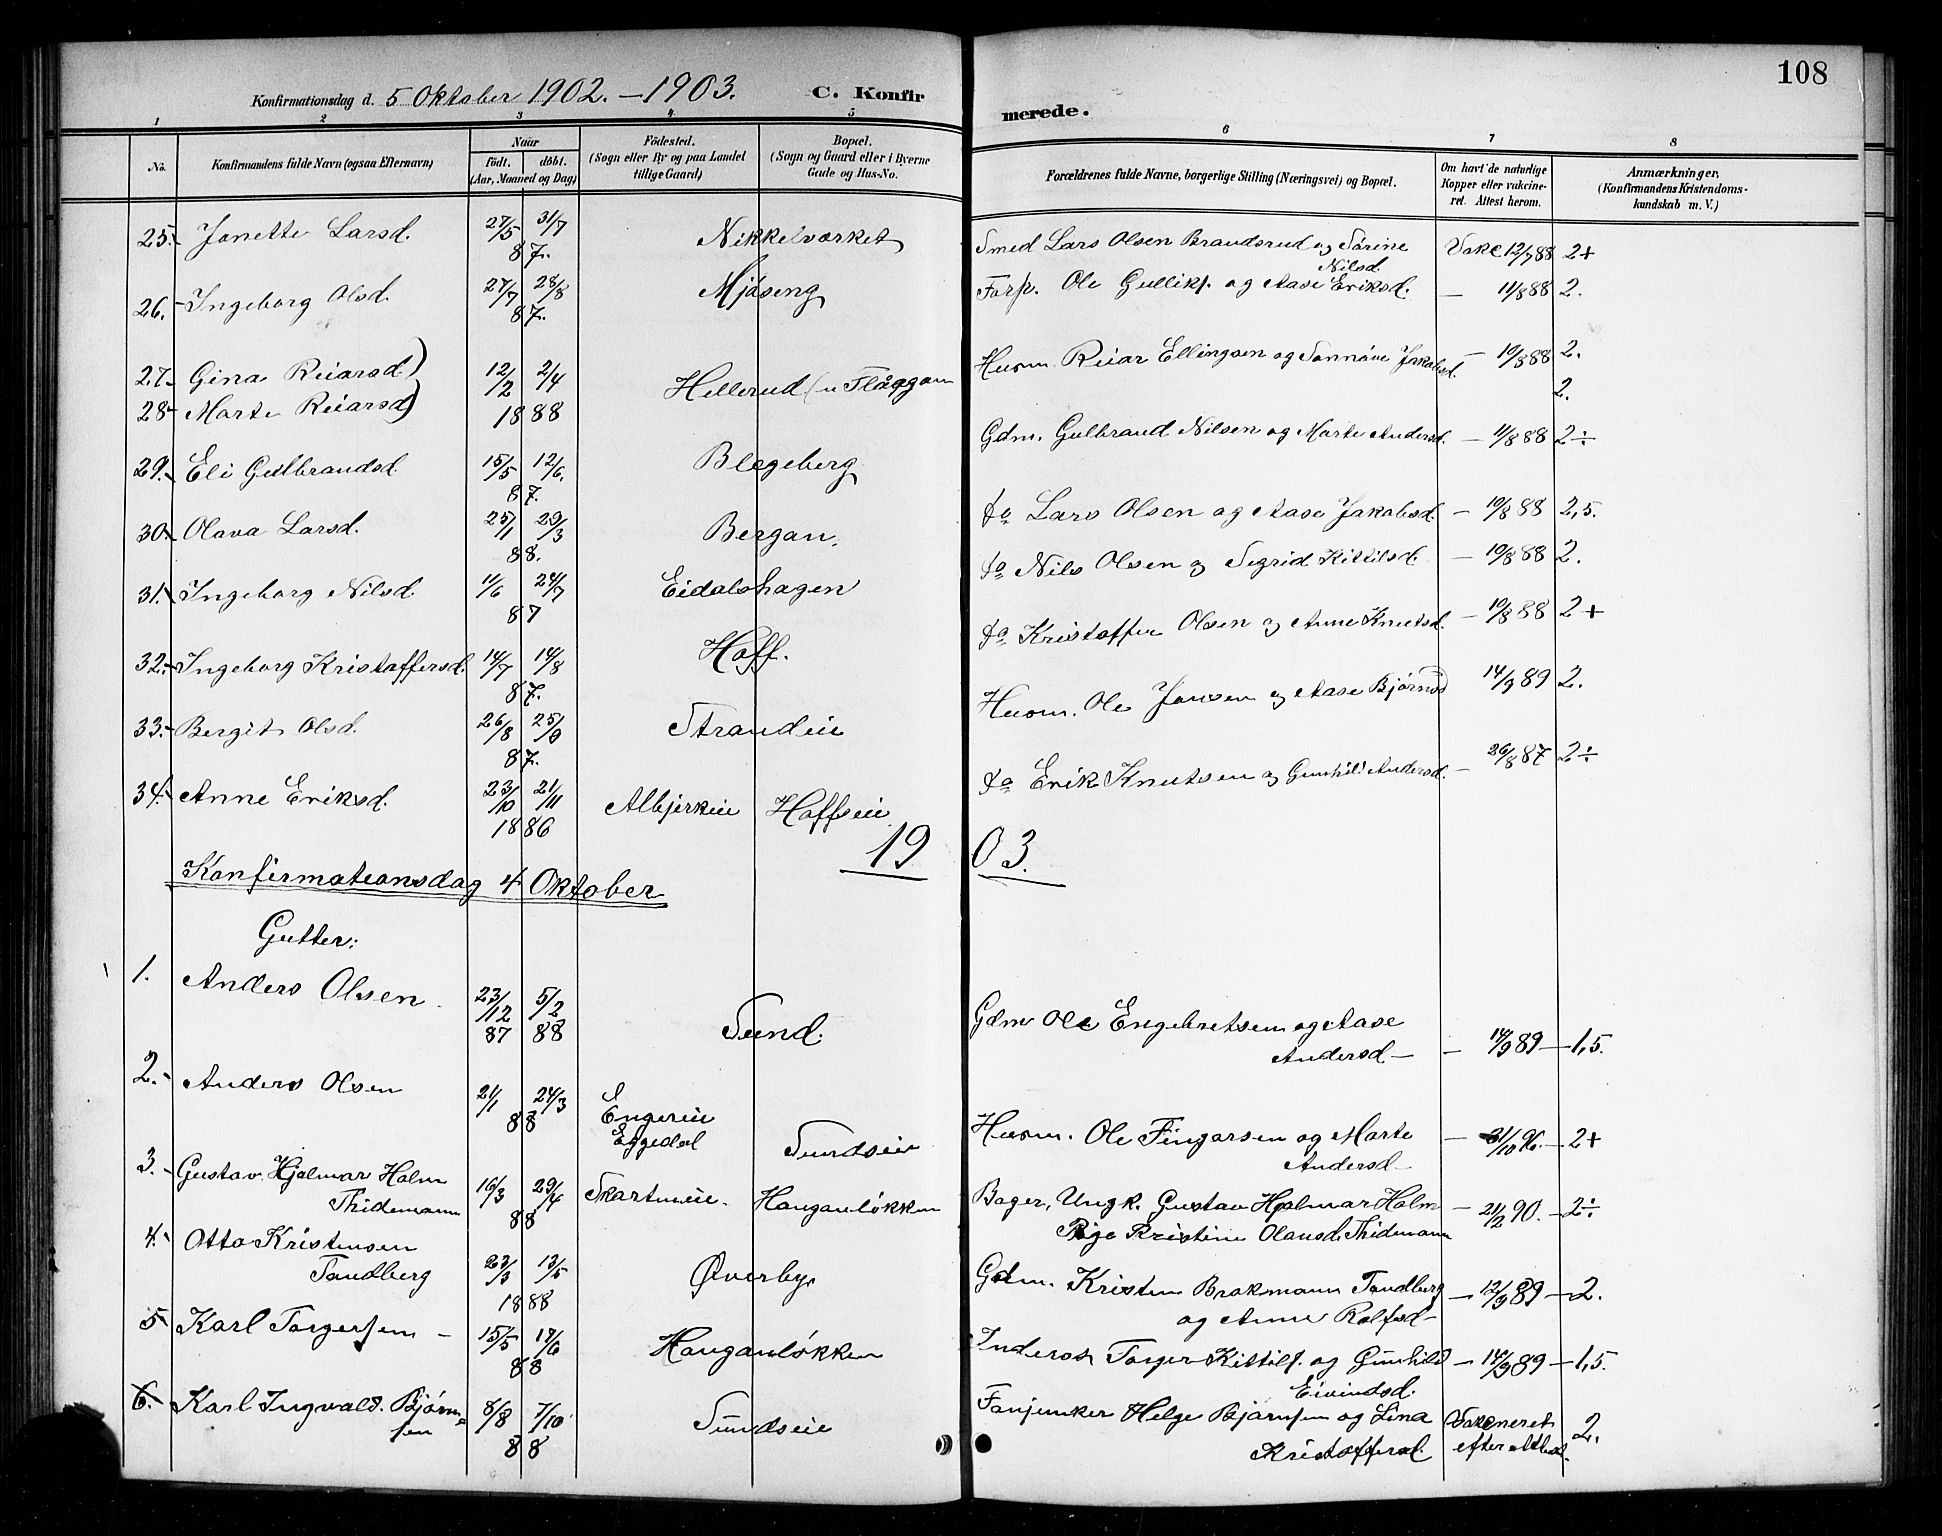 108
Konfirmationsdag d. 5 Oktober 1902. – 1903. C. Konfir
merede.
1 2 3 4 5 6 7 8
No. Konfirmandens fulde Navn (ogsaa Efternavn) Naar födt. döbt. (Aar, Maaned og Dag) Födested. (Sogn eller By og paa Landet tillige Gaard) Bopæl. (Sogn og Gaard eller i Byerne Gade og Hus-No.
Forældrenes fulde Navne, borgerlige Stilling (Næringsvei) og Bopæl. Om havt de naturlige Kopper eller vakcineret. Attest herom. Anmærkninger. (Konfirmandens Kristendomskundskab m. V.)
25. Janette Larsd. 27/5 31/7 Nikkelværket Smed Lars Olsen Brandsrud og Sørine Vakc 12/7 88 2+
87. Nilsd.
26. Ingeborg Olsd. 27/7 28/8 Mjøseng Forp. Ole Gulliks. og Aase Eriksd. – 11/8 88 2.
87.
27. Gina Reiarsd) 12/2 2/4 Hellerud (u Flaggan Husm. Reiar Ellingsen og Sønnøve Jakobsd. – 10/8 88 2.
28. Marte Reiarsd) 1888 2.
29. Eli Gulbrandsd. 15/5 12/6. Blegeberg Gdm. Gulbrand Nilsen og Marte Andersd. – 11/8 88 2÷
87.
30. Olava Larsd. 25/1 29/3 Bergan. do Lars Olsen og Aase Jakobsd. – 10/8 88 2,5.
88.
31. Ingeborg Nilsd. 11/6 24/7 Eidalshagen do Nils Olsen og Sigrid Kittilsd. – 10/8 88 2.
87
32. Ingeborg Kristoffersd. 14/7 14/8 Hoff. do Kristoffer Olsen og Anne Knutsd. – 10/8 88 2+
87.
33. Bergit Olsd. 26/8 25/9 Strandeie Husm. Ole Jonsen og Aase Bjørnsd 14/9 89 2.
87.
34. Anne Eriksd. 23/10 21/11 Albjerkeie Hoffseie do Erik Knutsen og Gunhild Andersd. – 26/8 87 2÷
1886
1903.
Konfirmationsdag 4 Oktober
Gutter:
1. Anders Olsen 23/12 5/2 Sund. Gdm Ole Engebretsen og Aase
87 88 Andersd – – 14/9 89 – 1,5.
2. Anders Olsen 21/1 24/3 Engereie Husm. Ole Fingarsen og Marte – 31/10 96. – 2+
88 Eggedal Sundseie Andersd –
3. Gustav Hjalmar Holm 16/3 29/4 Skartumeie. Hauganløkken Bager, Ungk. Gustav Hjalmar Holm – 21/2 90. – 2÷
Thidemann 88 Pige Kristine Olausd. Thidemann
4. Otto Kristensen 23/3 13/5 Øverby Gdm. Kristen Brokmann Tandberg – 12/9 89 – 2.
Tandberg 1888 og Anne Rolfsd –
5 Karl Torgersen – 15/5 17/6 Hauganløkken Inderst Torger Kittils. og Gunhild – 14/9 89 – 1,5.
88 Eivindsd.
6. Karl Ingvald. Bjørn- 8/8 7/10 Sundseie Fanjunker Helge Bjørnsen og Lina Vakcineret 2.
sen 88 Kristoffersd efter attest.